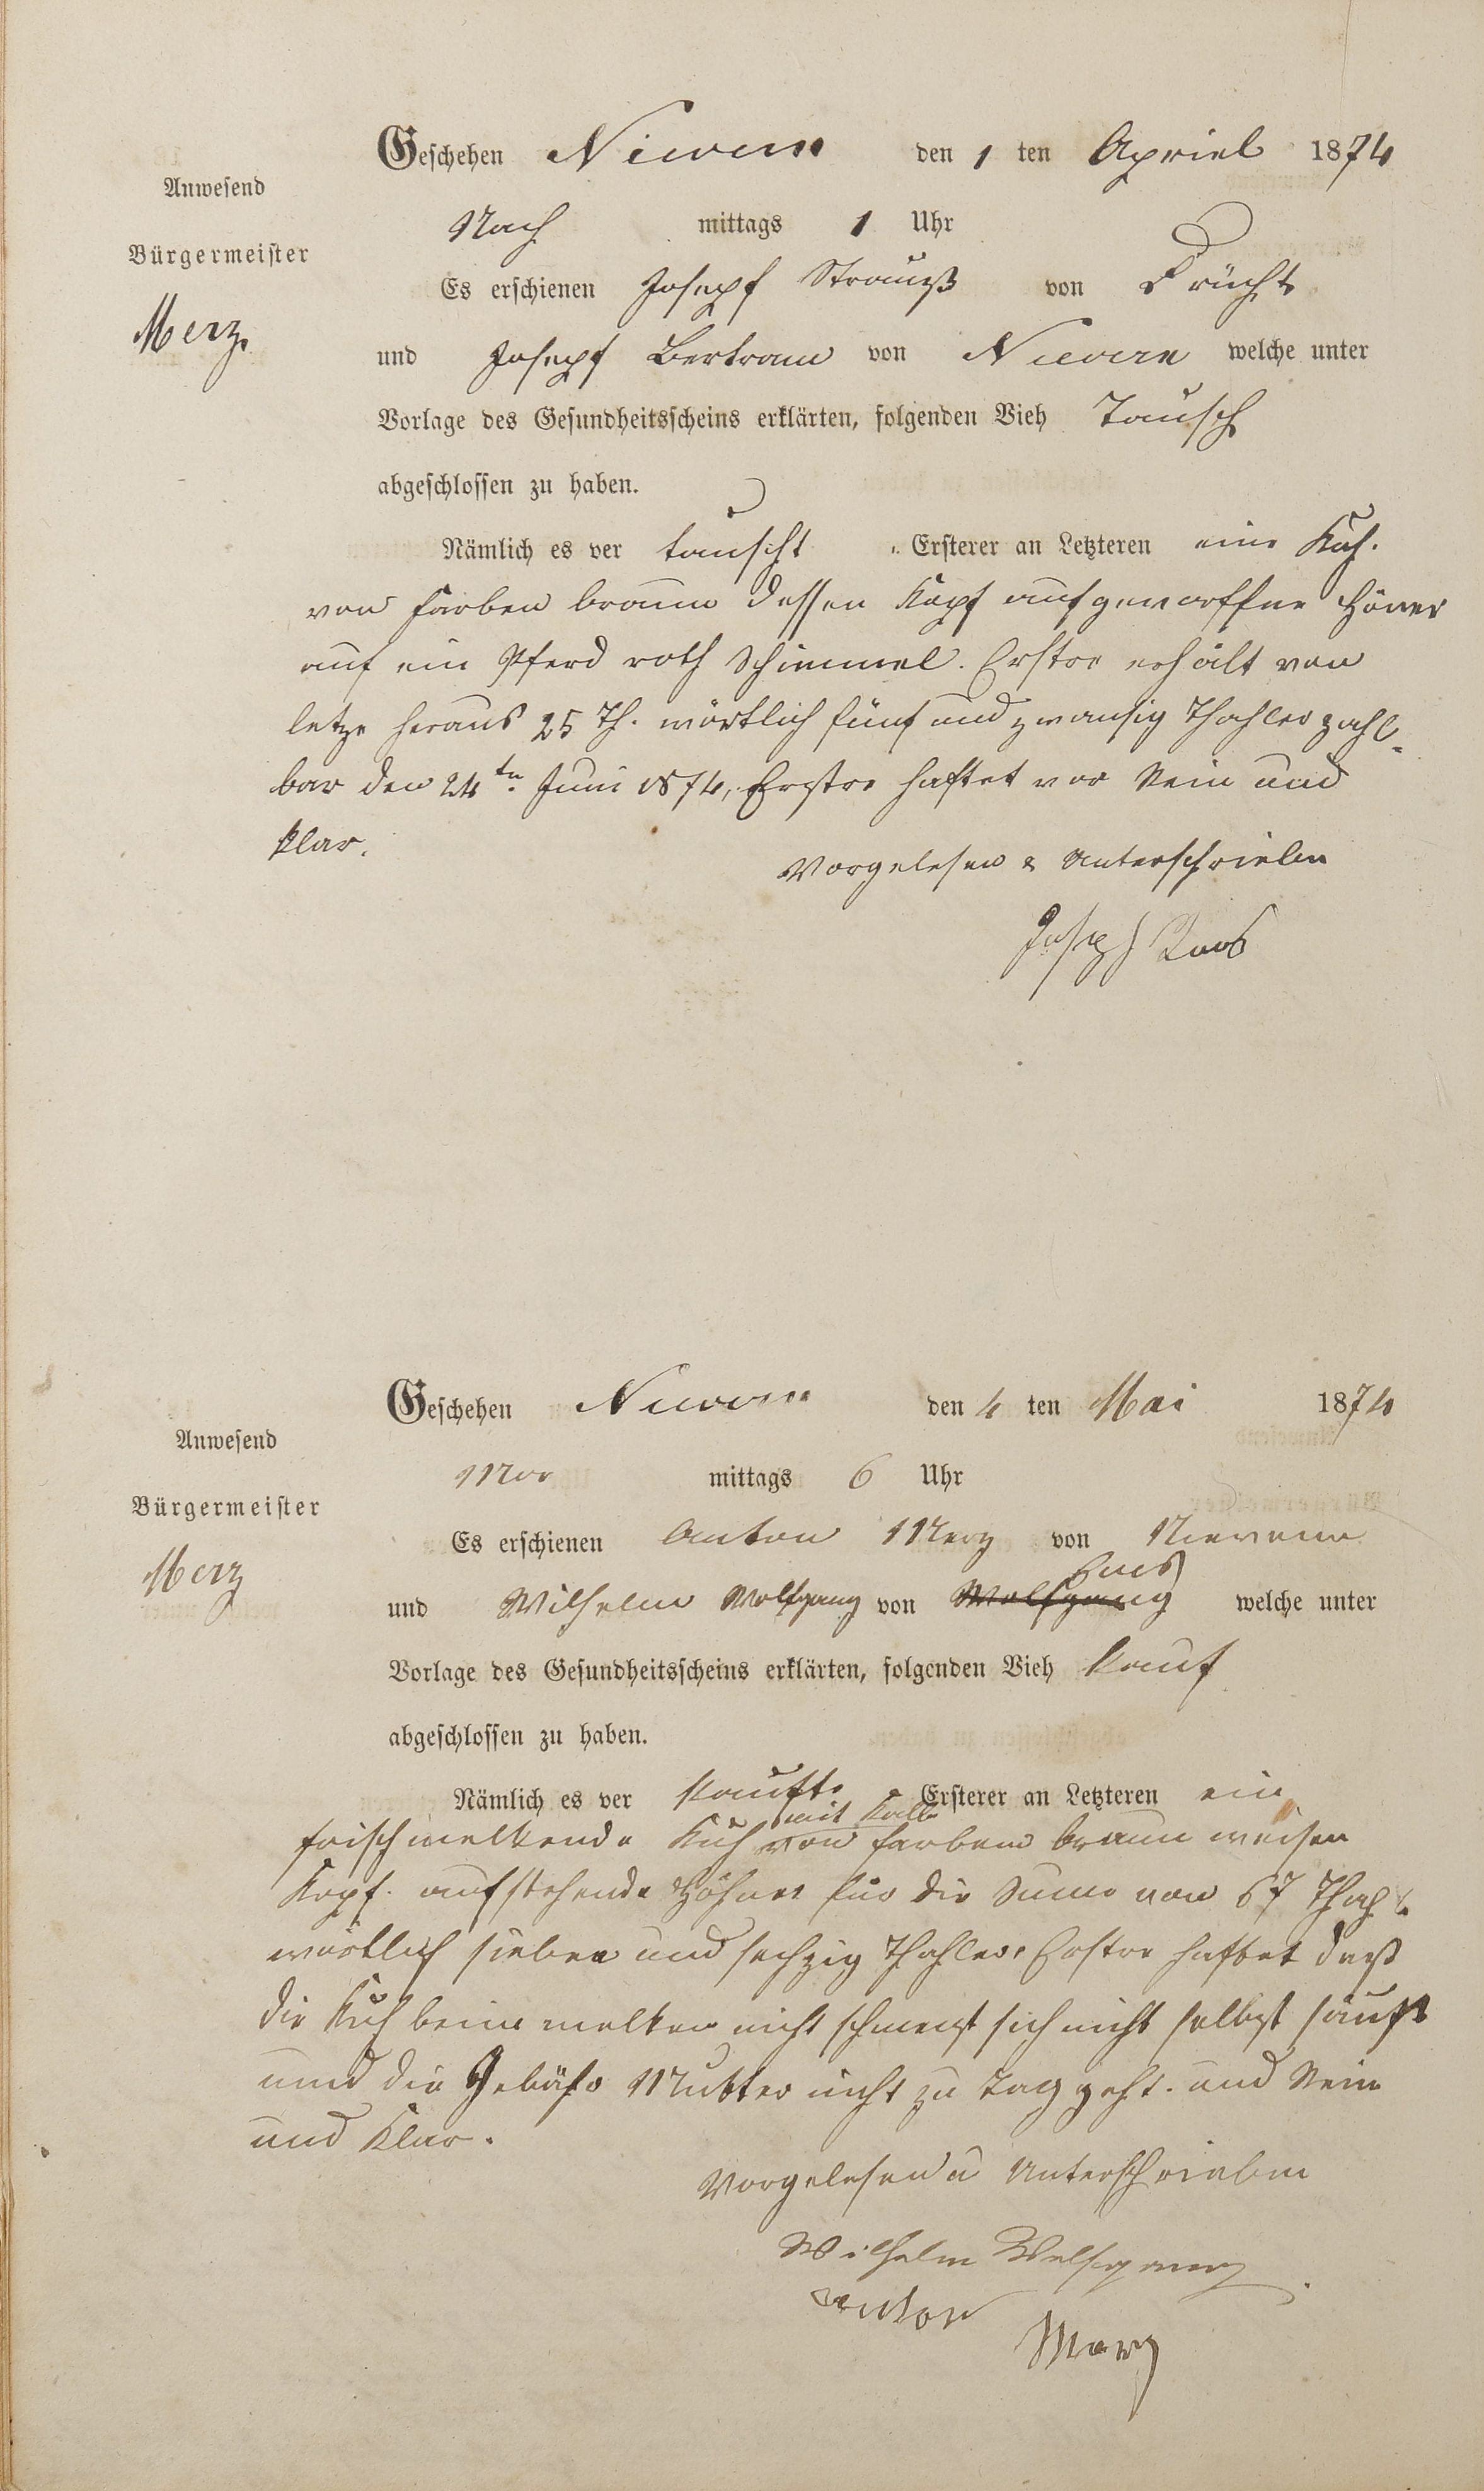 Geschehen Nievern den 1 ten Apriel 1874
Anwesend
Nach mittags 1 Uhr
Bürgermeister
Es erschienen Josepf Strauß von Frücht
Merz.
und Josepf Bertram von Nievern welche unter
Vorlage des Gesundheitsscheins erklärten, folgenden Vieh Tausch
abgeschlossen zu haben.
Nämlich es ver tauscht Ersterer an Letzteren eine Kuh.
von Farben braun dessen Kopf aufgeworffne Höner
auf ein Pferd roth Schimmel. Erster erhält von
letze heraus 25 Th. wörtlich fünf und zwansig Thahler zahl-
bar den 24ten Juni 1874, Erster haftet vor Rein und
klar.
Vorgelesen & Unterschrieben
Joseph
Geschehen Nievern den 4 ten Mai 1874
Anwesend
Vor mittags 6 Uhr
Bürgermeister
Es erschienen Anton Merz von Nievern
Merz
Ems
und Wilhelm Wolfgang von Wolfgang welche unter
Vorlage des Gesundheitsscheins erklärten, folgenden Vieh Kauf
abgeschlossen zu haben.
Nämlich es ver kaufte Ersterer an Letzteren ein
mit Kalb
frisch melkende Kuh von farben braun weisen
Kopf. aufstehende Höhner für die Sume von 67 Thahl.
wörtlich sieben und sechzig Thahler, Erster haftet daß
die Kuh beim melken nicht schmeist sich nicht selbst säuft
und die Gebähr Mutter nicht zu Tag geht. und Rein
und Klar.
Vorgelesen u Unterschrieben
Wilhelm Wolfgang
Anton
Merz